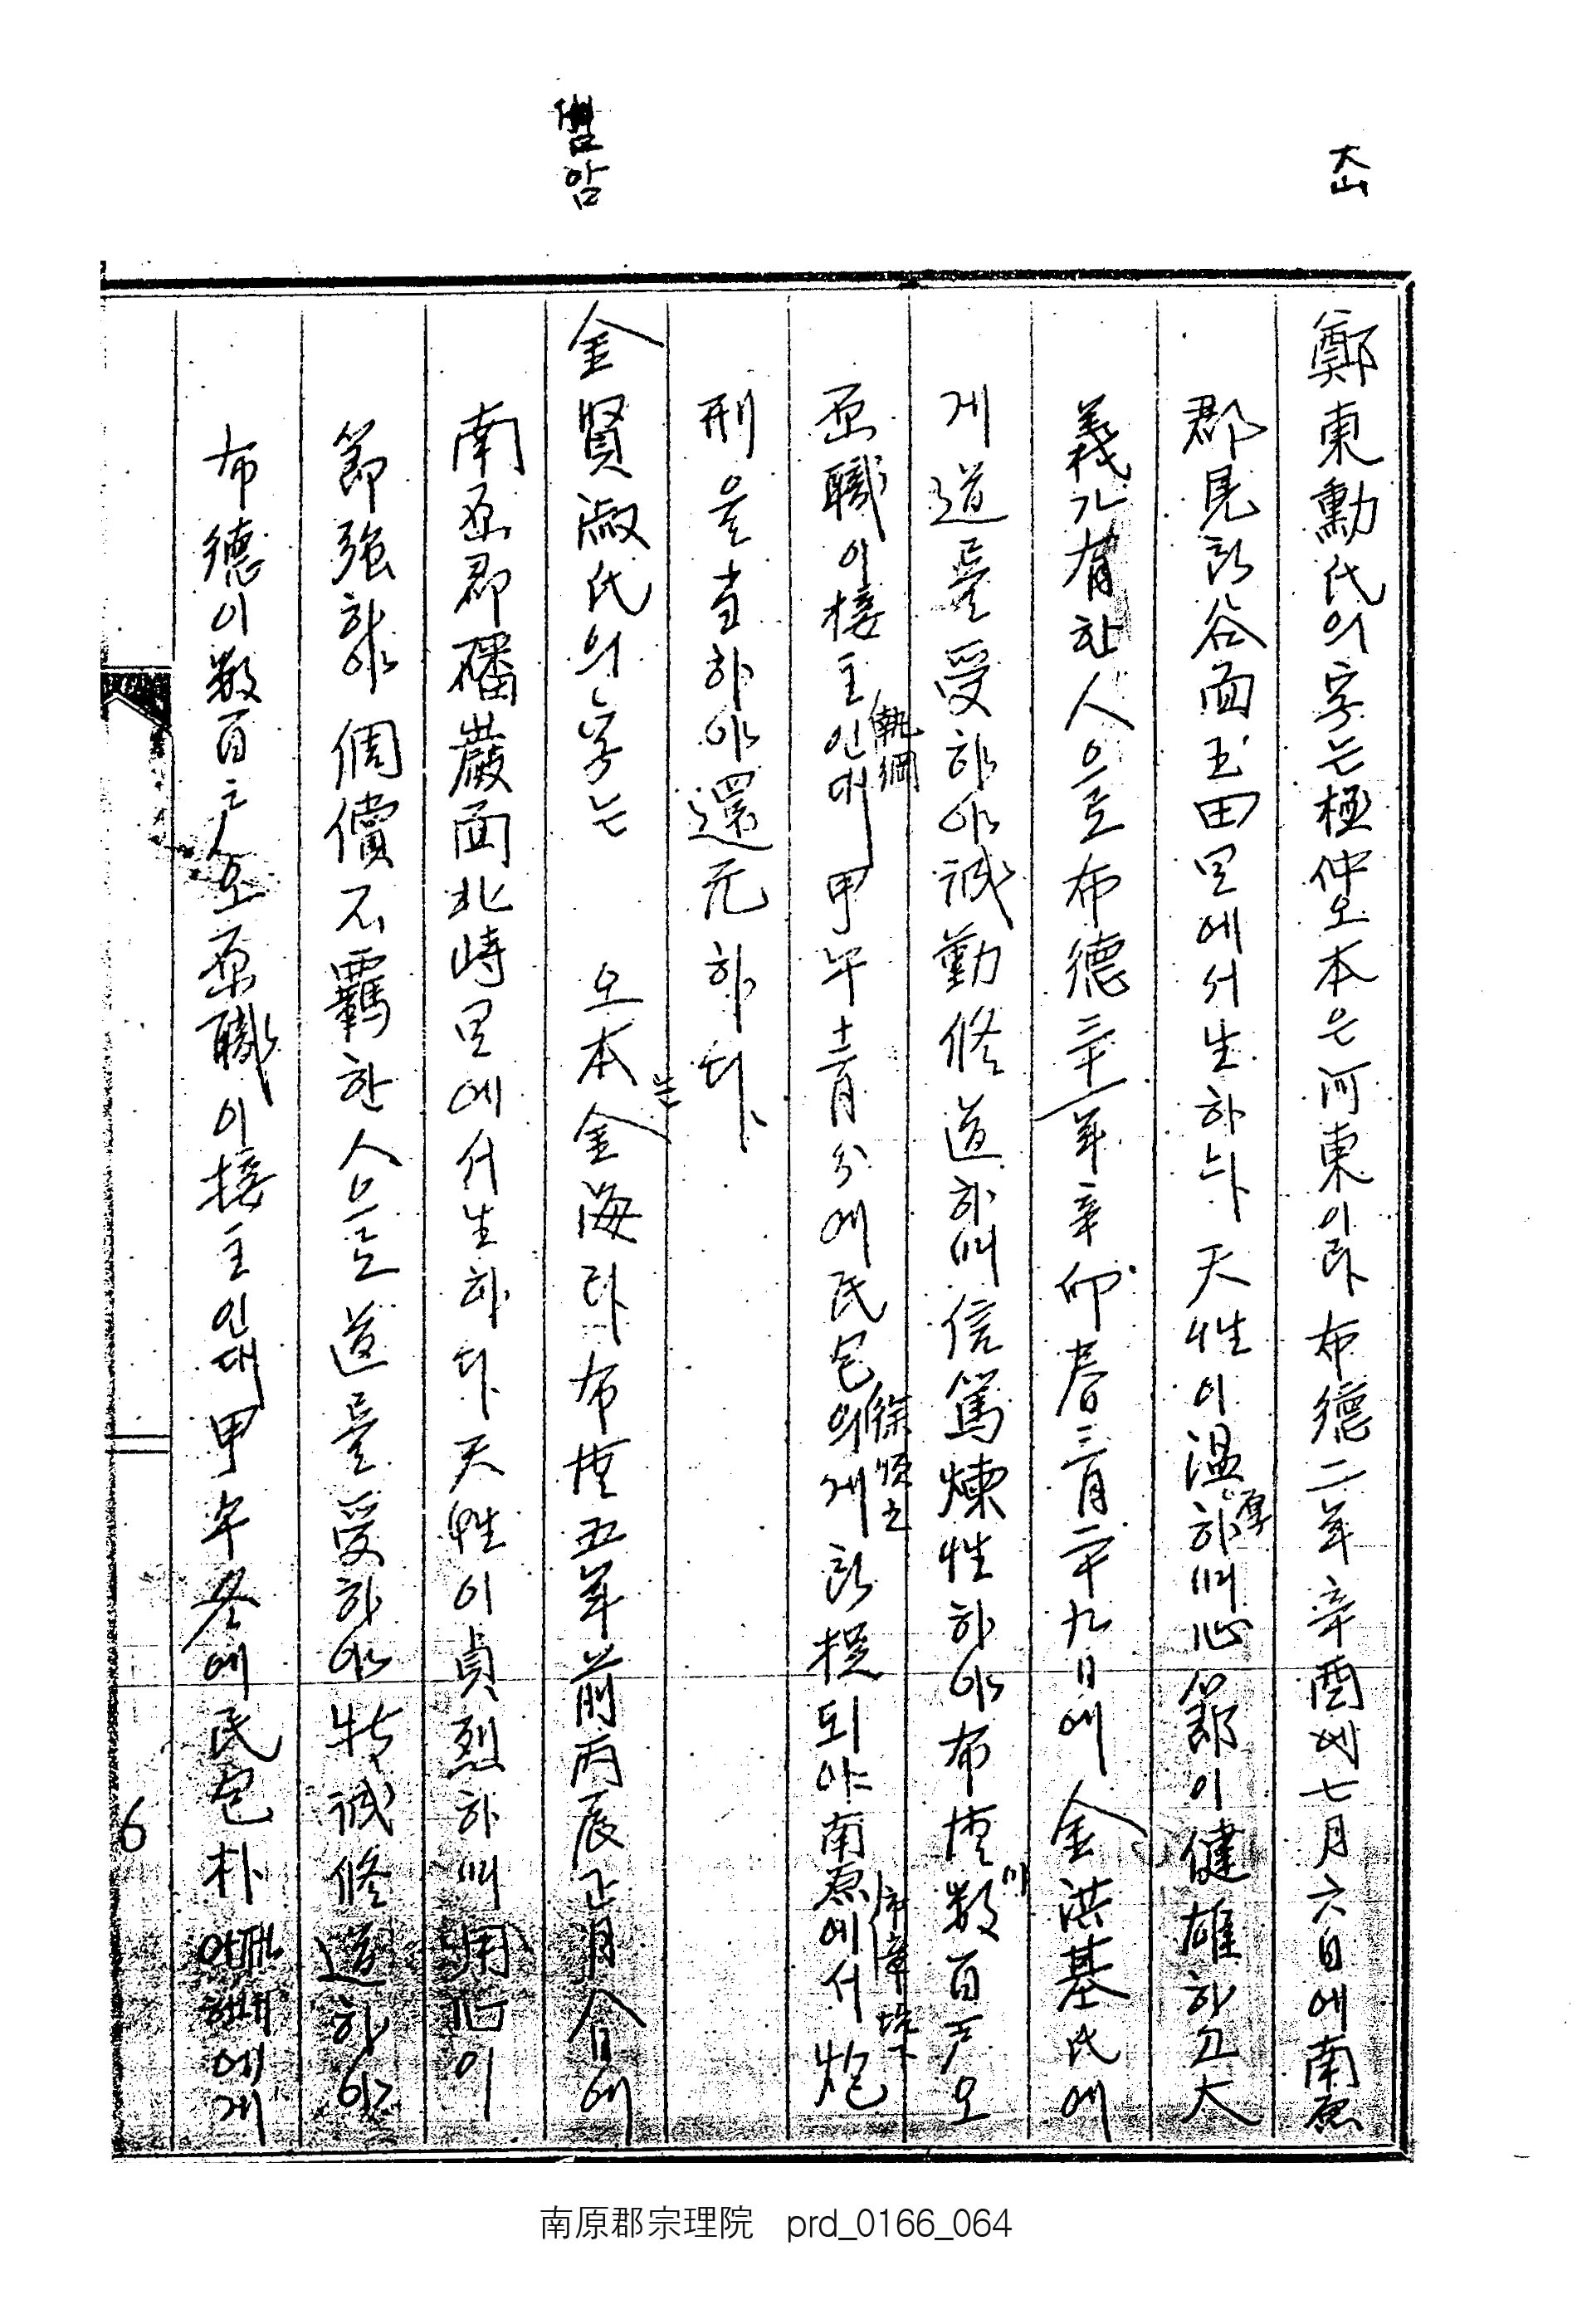 大山
鄭東勳氏의字는極仲오本은河東이라布德二年辛酉에七月六日에南原
郡見所谷面玉田里에서生하니天性이溫厚하며心節이健雄하고大
義가有한人으로布德三十二年辛卯春三月二十九日에金洪基氏에
게道를受하야誠勤修道하며信篤煉性하야布德이數百戶오
原職이接主執綱인대甲午十二月分에民包徐順之의게所捉되야南原市場에서炮
刑을当하야還元하다
암
金賢淑氏의字는 오本은金海라布德五年前丙辰正月 에
南原郡磻巖面北峙里에서生하다天性이貞烈하며 心이
節強하야個儻不羈한人으로道를受하야特誠修道하야
布德이數百戶오原職이接主인대甲午冬에民包朴 에게
6
南原郡宗理院 prd_0166_064